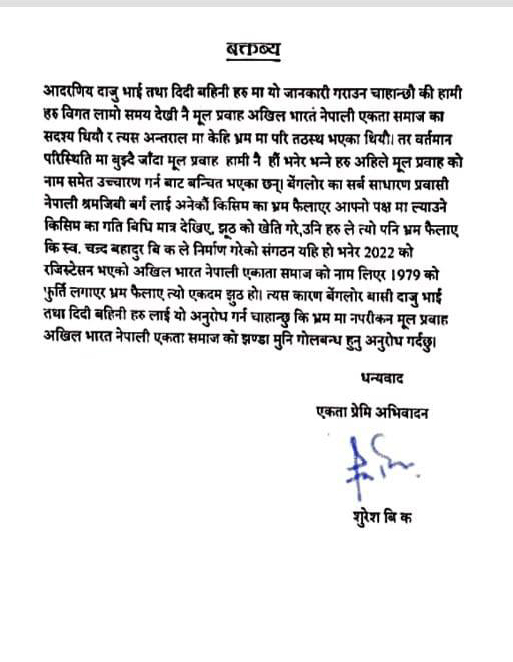 बक्तब्य
आदरणिय दाजु भाई तथा दिदी बहिनी हरु मा यो जानकारी गराउन चाहान्छौ की हामी
हरु विगत लामो समय देखी नै मूल प्रवाह अखिल भारत नेपाली एकता समाज का
सदश्य थियौ र त्यस अन्तराल मा केहि भ्रम मा परि तठस्थ भएका थियौ। तर वर्तमान
परिस्थिति मा बुझ्दै जाँदा मूल प्रवाह हामी नै हौं भनेर भन्ने हरु अहिले मूल प्रवाह को
नाम समेत उच्चारण गर्न बाट बन्चित भएका छन्। बेंगलोर का सर्ब साधारण प्रवासी
नेपाली श्रमजिवी बर्ग लाई अनेकौं किसिम का भ्रम फैलाएर आफ्नो पक्ष मा ल्याउने
किसिम का गति बिधि मात्र देखिए, झूठ को खेति गरे,उनि हरु ले त्यो पनि भ्रम फैलाए
कि स्व. चन्द्र बहादुर बि क ले निर्माण गरेको संगठन यहि हो भनेर 2022 को
रजिस्टेसन भएको अखिल भारत नेपाली एकाता समाज को नाम लिएर 1979 को
फुर्ति लगाएर भ्रम फैलाए त्यो एकदम झुठ हो। त्यस कारण बेंगलोर बासी दाजु भाई
तथा दिदी बहिनी हरु लाई यो अनुरोध गर्न चाहान्छु कि भ्रम मा नपरीकन मूल प्रवाह
अखिल भारत नेपाली एकता समाज को झण्डा मुनि गोलबन्ध हुनु अनुरोध गर्दछु।
धन्यवाद
एकता प्रेमि अभिवादन
शुरेश बि क